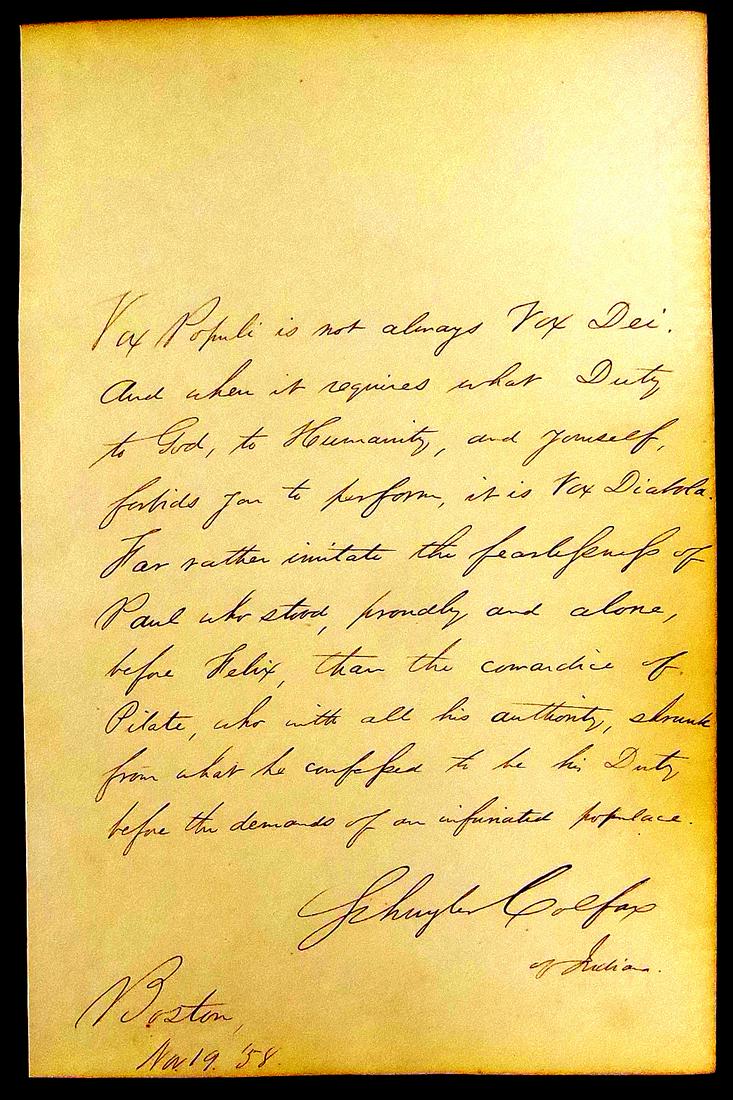 Vox Populi is not always Vox Dei.
And when it requires what Duty
to God, to Humanity, and yourself,
forbids you to perform, it is Vox Diabola.
Far rather imitate the fearlessness of
Paul who stood, proudly and alone,
before Felix, than the cowardice of
Pilate, who with all his authority, shrunk
from what he confessed to be his Duty
before the demands of an infuriated populace.
Schuyler Colfax
of Indiana.
Boston,
Nov. 19. '58.